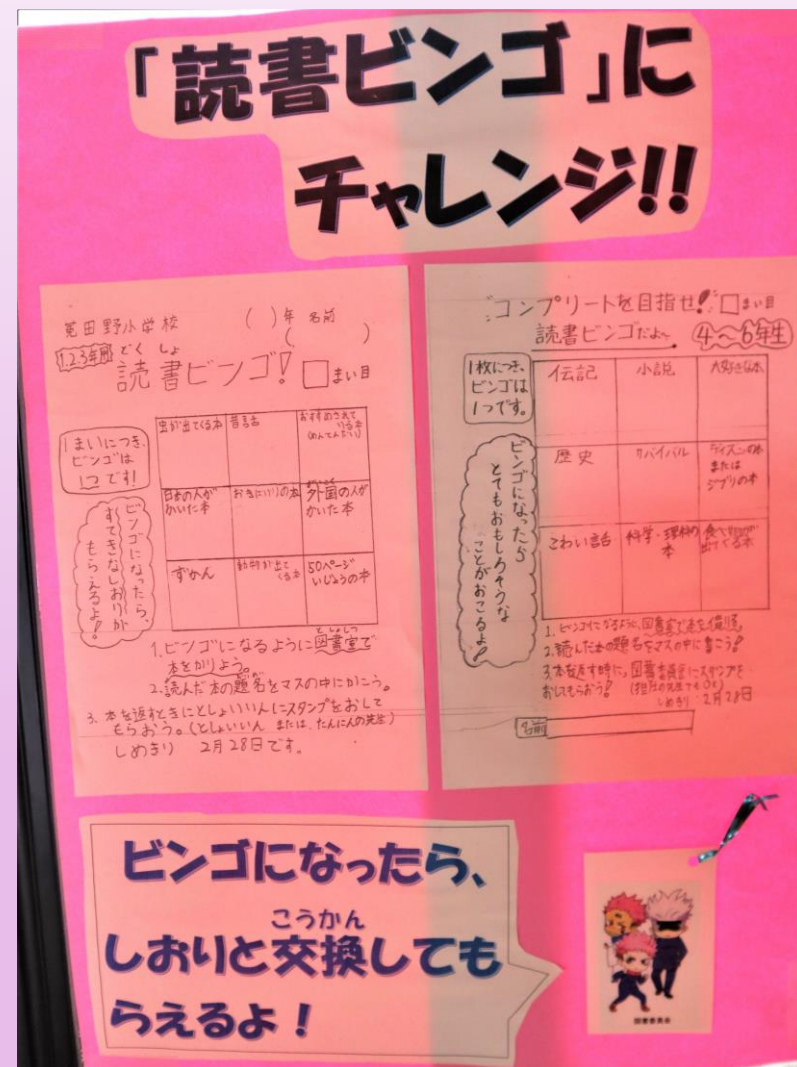 「読書ビンゴ」に
チャレンジ!!
莵田野小学校 ( )年 名前
( )
1.2.3年用 どくしょ
読書ビンゴ! □まい目
1まいにつき、
ビンゴは
1つです!
ビンゴになったら、
すてきなしおりが
もらえるよ!
虫が出てくる本 昔話 おすすめされて
いる本
日本の人が
かいた本
お気にいりの本
外国の人が
かいた本
ずかん
動物が出て
くる本
50ページ
いじょうの本
1.ビンゴになるように図書室で
としょしつ
本をかりよう。
2.読んだ本の題名をマスの中にかこう。
3.本を返すときにとしょいいんにスタンプをおして
もらおう。(としょいいん または、たんにんの先生)
しめきり 2月28日です。
コンプリートを目指せ! □まい目
読書ビンゴだよ〜 4〜6年生
1枚につき、
ビンゴは
1つです。
ビンゴになったら
とてもおもしろそうな
ことがおこるよ!
伝記 小説 大好きな本
歴史 サバイバル ディズニーの本
または
ジブリの本
こわい話 科学・理科の
本
食べ物が
出てくる本
1.ビンゴになるように、図書室で本を借りる。
2.読んだ本の題名をマスの中に書こう!
3.本を返す時に、図書委員にスタンプを
おしてもらおう! (担任の先生でもOK)
しめきり 2月28日
名前
ビンゴになったら、
こうかん
しおりと交換しても
らえるよ!
図書委員会